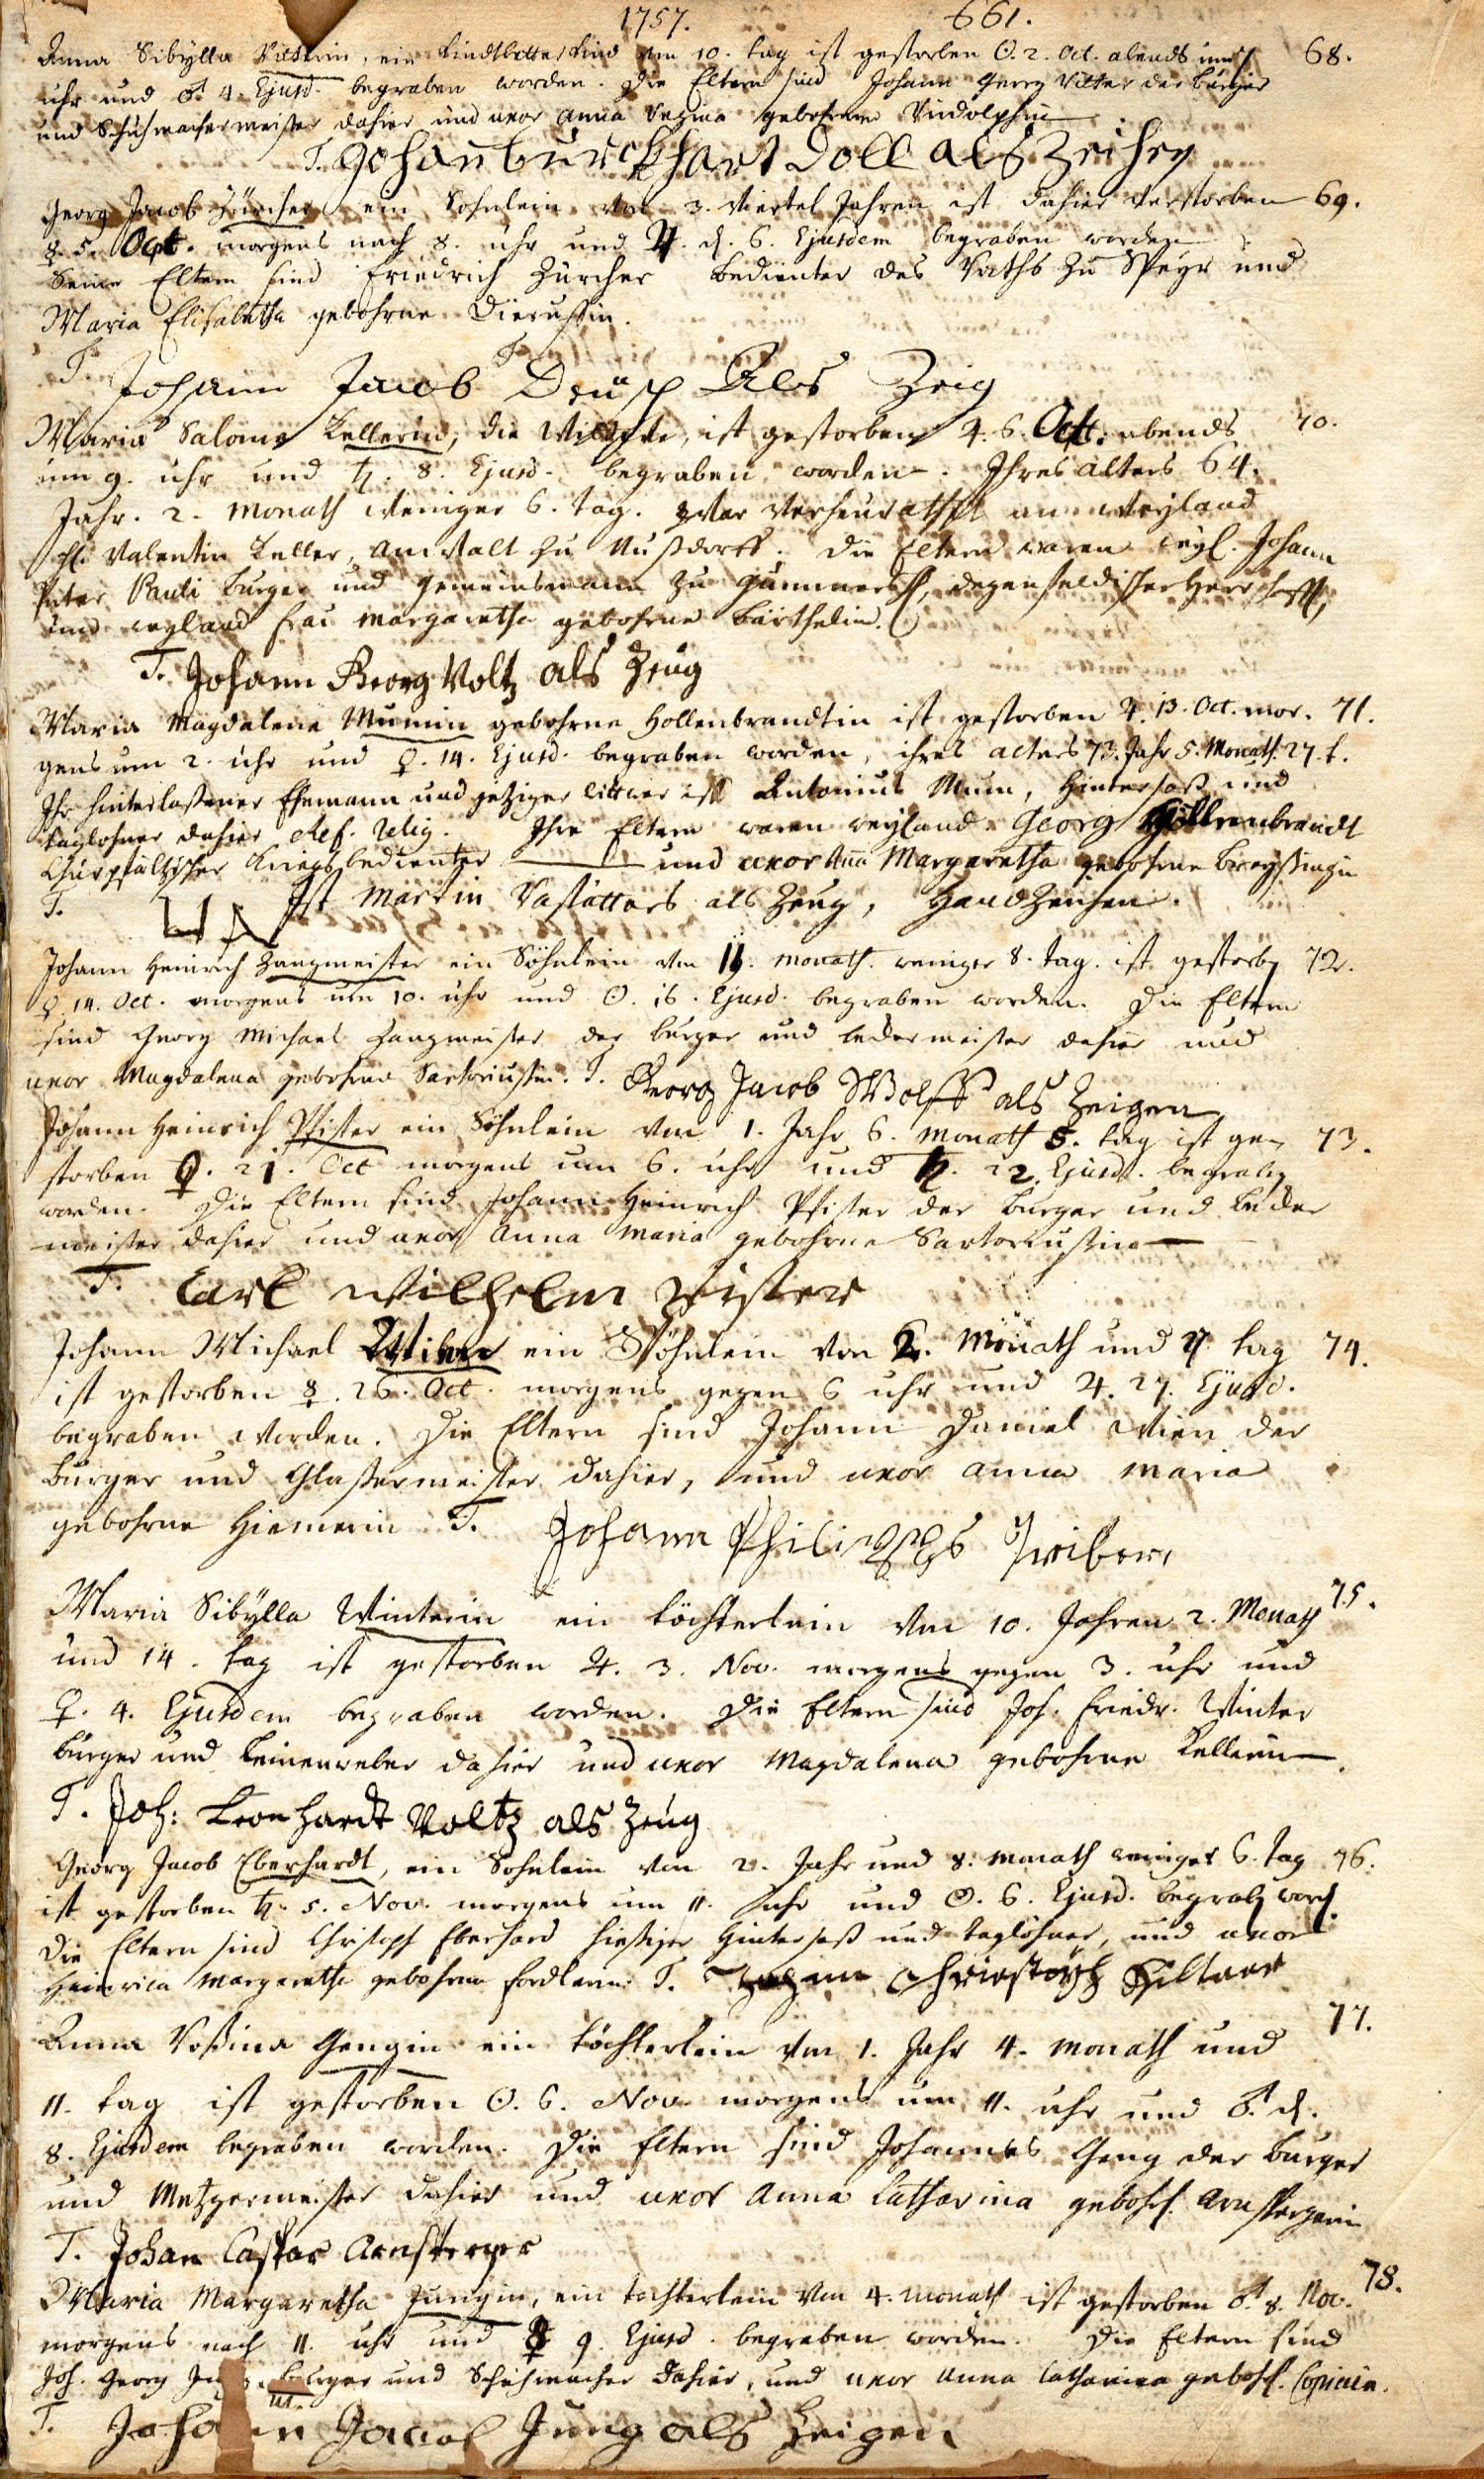 1757. 661.
Anna Sibylla, ein Kindbetter Kind von 10. tag ist gestorben ☉. 2. Oct. abends um
uhr und ♂. 4. Ejusd. begraben worden. Die Eltern sind Johann Georg Ritter der Burger 68.
und Schuhmachermeister dahier und uxor Anna Regina gebohrene Rudolphin
T. Johan burckhart Doll als Zeihen
Georg Jacob Zürcher ein Sohnlein von 3. viertel Jahren ist dahier verstorben 69.
☿. 5. Oct. morgens nach 8. uhr und ♃. d. 6. Ejusdem begraben worden
Seine Eltern sind Friedrich Zürcher Bedienter des Raths zu Speyr und
Maria Elisabetha gebohrne Dierussin.
T. Johann Jacob Als Zeig
Maria Salome Kellerin, die Wittwe, ist gestorben ♃. 6. Oct. abends 70.
um 9. uhr und ♄. 8. Ejusd. begraben worden. Ihres alters 64.
Jahr. 2. Monath weniger 6. tag. War verheurathet an weyland
H. Valentin Keller, Anwalt zu Nußdorff. Die Eltern waren weyl. Johann
Peter Pauli burger und Gemeinsmann zu, degenfeldischer Herrschafft,
und weyland frau Margaretha gebohrne Barthelin.
T. Johann Georg Voltz als Zeug
Maria Magdalena Mumin gebohrne Hollenbrandtin ist gestorben ♃. 13. Oct. mor- 71.
gens um 2. uhr und ♀. 14. Ejusd. begraben worden, ihres alters 73. Jahr 5. Monath. 27. t.
Ihr hinterlaßener Ehemann und jetziger Wittwer ist Antonius Mum, Hintersaß und
taglohner dahier Ref. Relig. Ihre Eltern waren weyland Georg Hollenbrandt
Churpfältzischer Kriegsbedienter und uxor Anna Margaretha gebohrne
T. Ist Martin Rastätters als Zeug, Handzeichen.
Johann Heinrich Zangmeister ein Söhnlein von 11. monath. weniger 8. tag. ist gestorben 72.
♀. 14. Oct. morgens um 10. uhr und ☉. 16. Ejusd. begraben worden. Die Eltern
sind Georg Michael Zangmeister der burger und ledermeister dahier und
uxor Magdalena gebohrne Sartoriussin. T. Georg Jacob Wolff als Zeigen
Johann Heinrich Pfister ein Söhnlein von 1. Jahr 6. monath 5. tag ist ge- 73.
storben ♀. 21. Oct morgens um 6. uhr und ♄. 22. Ejusd. begraben
worden. Die Eltern sind Johann Heinrich Pfister der burger und leder
meister dahier und uxor Anna Maria gebohrne Sartoriussin
T. Carl Wilhelm Pfister
Johann Michael ein Söhnlein von 2. Monath und 7. tag 74.
ist gestorben ☿. 26. Oct. morgens gegen 6 uhr und ♃. 27. Ejusd.
begraben worden. Die Eltern sind Johann Daniel der
burger und Glasermeister dahier, und uxor Anna Maria
gebohrne Hiemerin T. Johann Philipps
Maria Sibylla Winterin ein töchterlein von 10. Jahren 2. Monath 75.
und 14. tag ist gestorben ♃. 3. Nov. morgens gegen 3. uhr und
♀. 4. Ejusdem begraben worden. Die Eltern sind Joh. Friedr. Winter
burger und Leinenweber dahier und uxor Magdalena gebohrne Kellerin.
T. Joh: Leonhardt Voltz als Zeug
Georg Jacob Eberhardt, ein Sohnlein von 2. Jahr und 8. monath weniger 6. tag 76.
ist gestorben ♄. 5. Nov. morgens um 11. uhr und ☉. 6. Ejusd. begraben word.
Die Eltern sind Christoph Eberhard hiesiger Hintersaß und taglöhner, und uxor
Heinrica Margaretha gebohrne T. Christoph
Anna Rosina Gengin ein töchterlein von 1. Jahr 4. monath und 77.
11. tag ist gestorben ☉. 6. Nov. morgens um 11. uhr und ♂. d.
8. Ejusdem begraben worden. Die Eltern sind Johannes Geng der burger
und Metzgermeister dahier und uxor Anna Catharina gebohr. Arnspergerin
T. Johan Caspar Arnsperger
Maria Margaretha Jungin, ein tochterlein von 4. monath ist gestorben ♂. 8. Nov. 78.
morgens nach 11. uhr und ☿ 9. Ejusd. begraben worden. Die Eltern sind
Joh. Georg burger und Schuhmacher dahier, und uxor Anna Catharina gebohr.
T. Johann Jacob Jung als Zeigen